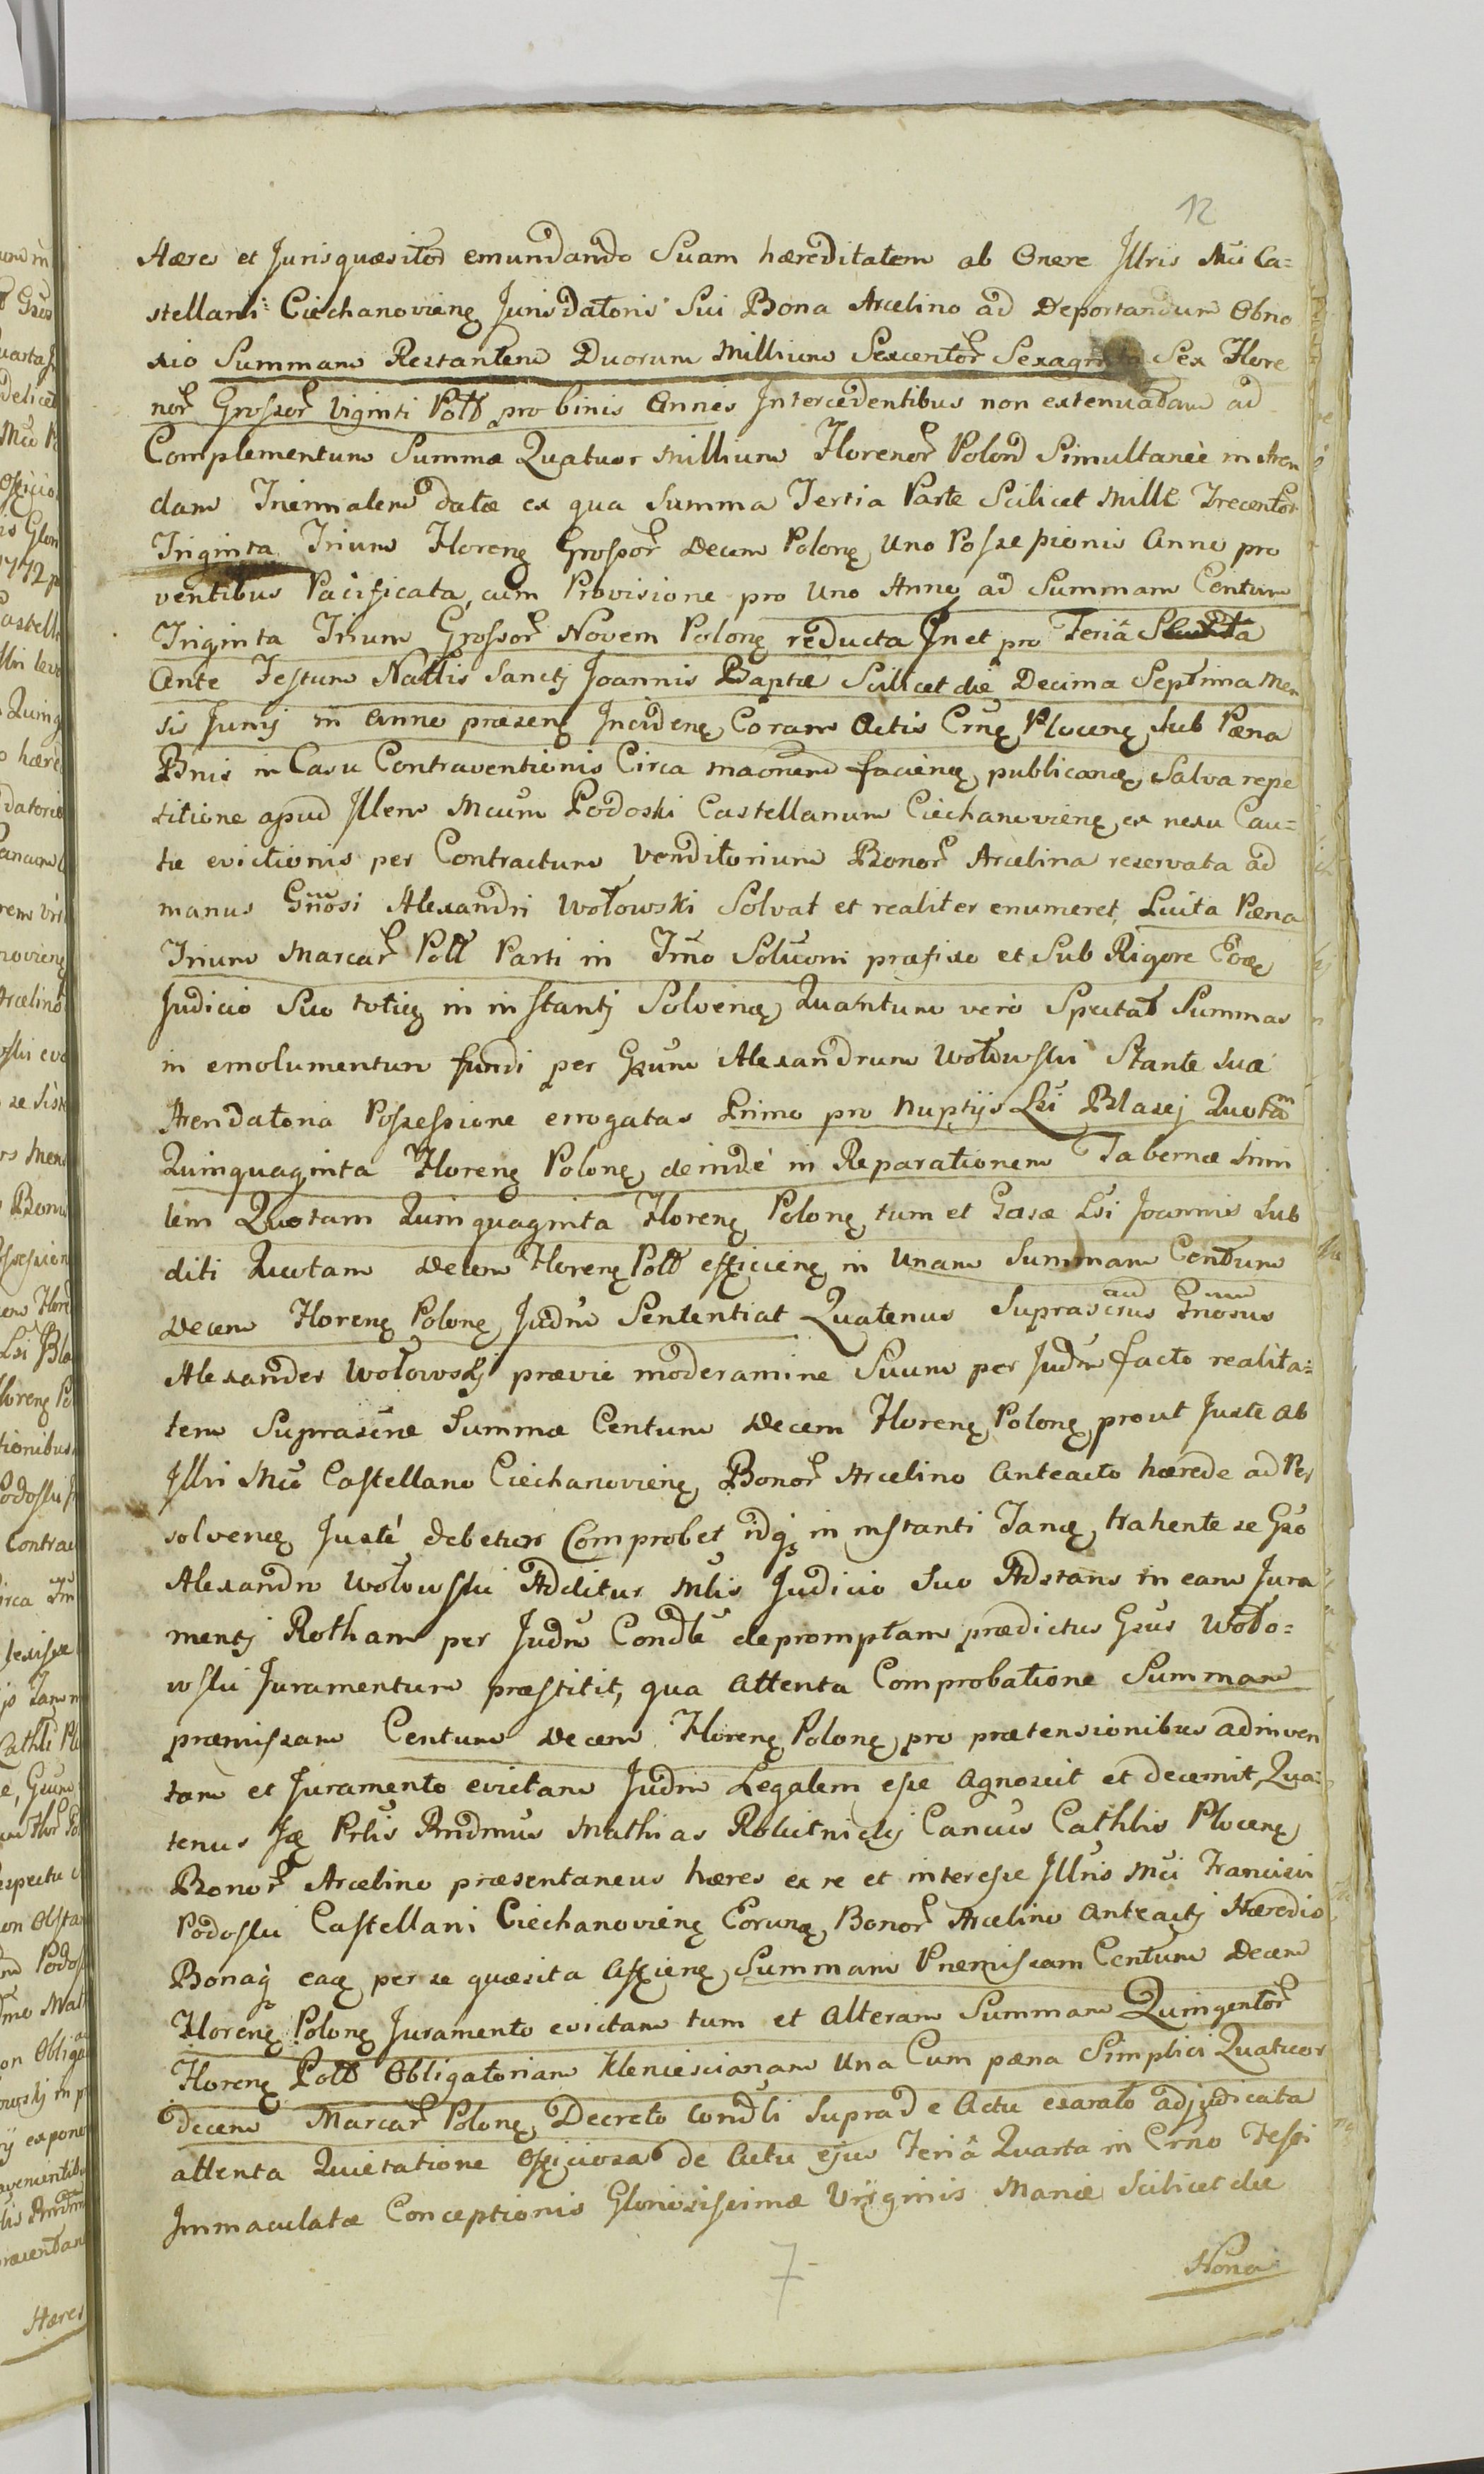 12
Hæres et Jurisquæsitor emundando Suam hæreditatem ab Onere Jllris Mci Ca=
stellani Ciechanovienę Jurisdatoris Sui Bona Arcelino ad Deportandum Obno
xio Summam Restantem Duorum Millium Sexcentor Sexaginta Sex Flore
nor Grossor Viginti Poll pro binis Annis Intercedentibus non extenuatam ad
Complementum Summæ Quatuor Millium Florenor Polon Simultaneè in Aren
dam Triennalem datæ ex qua Summa Tertia Parte Scilicet Mille Trecentor
Triginta Trium Florenę Grossor Decem Polonę Uno Possessionis Anno pro
ventibus Pacificata, cum Provisione pro Uno Anno ad Summam Centum
Triginta Trium Grossor Novem Polonę reducta Jn et pro Feriâ
Ante Festum Natlis Sancti Joannis Baptæ Scilicet die Decima Septima Men
sis Junij in Anno præsenę Incidenę Coram Actis Crnę Plocenę Sub Pæna
Bnis in Casu Contraventionis Circa maonem faciendę publicandę, Salva repe
titione apud Jllem Mcum Podoski Castellanum Ciechanovienę ex nexu Cau=
tæ evictionis per Contractum Venditorium Bonor Arcelina reservata ad
manus Gnosi Alexandri Wołowski Solvat et realiter enumeret, Luita Pæna
Trium Marcar Poll Parti in Tmo Solvoni præfixo et Sub Rigore
Judicio Suo totię in instantj Solvendę Quantum verò Spectat Summas
in emolumentum fundi per Gsum Alexandrum Wołowski Stante Sua
Arendatoria Possessione errogatas Primo pro Nuptijs Lsi Blasej Quotam
Quinquaginta Florenę Polonę, deindé in Reparationem Tabernæ Simi
lem Quotam Quinquaginta Florenę Polonę tum et Casæ Lsi Joannis Sub
diti Quotam Decem Florenę Poll efficienę in Unam Summam Centum
Decem Florenę Polonę Judm Sententiat Quatenus Suprascrus Gnosus
Alexander Wołowskj prævie moderamine Suum per Judm facto realita=
tem Suprascræ Summæ Centum Decem Florenę Polonę prout Juste ab
Jllri Mco Castellano Ciechanovienę Bonor Arcelino Anteacto hærede ad Per
solvendę Justé debetur Comprobet idq in instanti Tandę trahente se Gso
Alexandro Wołowski Additur Mlis Judicio Suo Adstans in eam Jura
mentj Rotham per Judm Condle depromptam prædictus Gsus Woło=
wski Juramentum præstitit, qua Attenta Comprobatione Summam
præmissam Centum Decem Florenę Polonę pro prætensionibus adinven
tam et Juramento evictam Judm Legalem esse Agnoscit et decernit, Qua=
tenus Jdę Prlis Rndmus Mathias Rokitnicki Cancus Cathlis Plocenę
Bonor Arcelino præsentaneus hæres ex re et interesse Jllris Mci Francisci
Podoski Castellani Ciechanovienę Eorundę Bonor Arcelino Anteactj Hæredis
Bonaq eadę per se quæsita Afficienę Summam Præmissam Centum Decem
Florenę Polonę Juramento evictam tum et Alteram Summam Quingentor
Florenę Poll Obligatoriam Kleniescianam Una Cum pæna Simplici Quatuor
decem Marcar Polonę, Decreto Condli Supra de Actu exarato adjudicata
attenta Quietatione Officiosa de Actu ejus Feriâ Quarta in Crno Festi
Jmmaculatæ Conceptionis Gloriosissimæ Virginis Mariæ Scilicet die
Nona
7